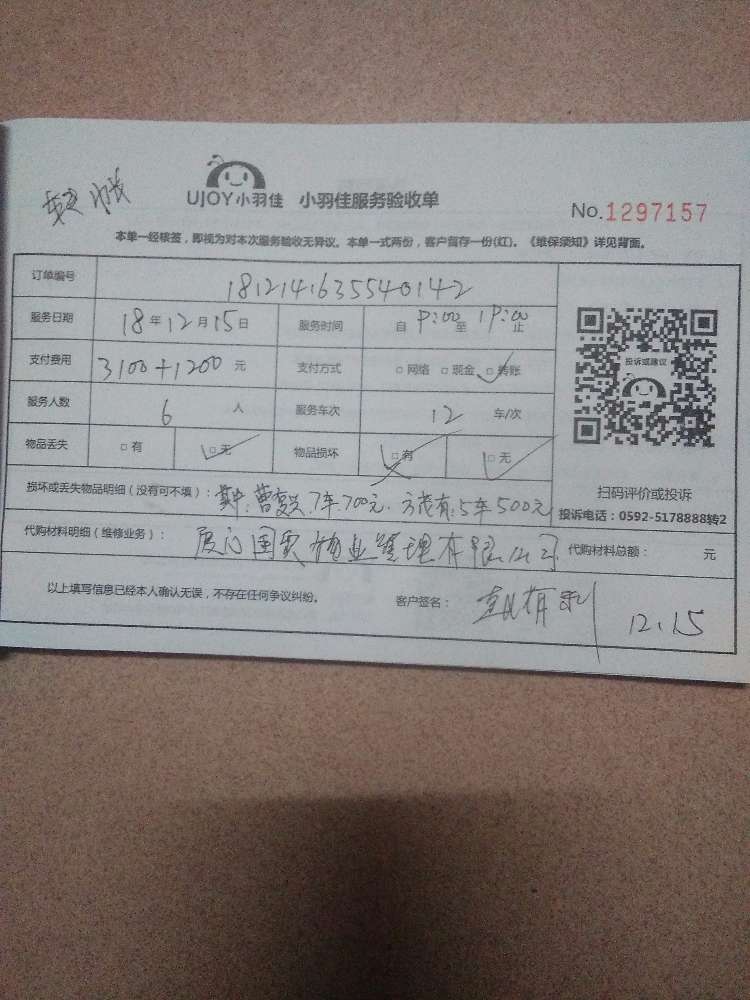 UJOY小羽佳 小羽佳服务验收单
No.1297157
本单一经核签，即视为对本次服务验收无异议。本单一式两份，客户留存一份(红)。《维保须知》详见背面。
订单编号 1812141635540142
服务日期 18年12月15日 服务时间 自 9:00 至 19:00 止
支付费用 3100+1200 元 支付方式 □网络 □现金 □转账
服务人数 6 人 服务车次 12 车/次
物品丢失 □有 □无 物品损坏 □有 □无
投诉或建议
扫码评价或投诉
投诉电话：0592-5178888转2
损坏或丢失物品明细（没有可不填）：其中：曹复兴 7车 700元. 方茂有：5车 500元
代购材料明细（维修业务）： 厦门国贸物业管理有限公司 代购材料总额： 元
以上填写信息已经本人确认无误，不存在任何争议纠纷。 客户签名： 12.15